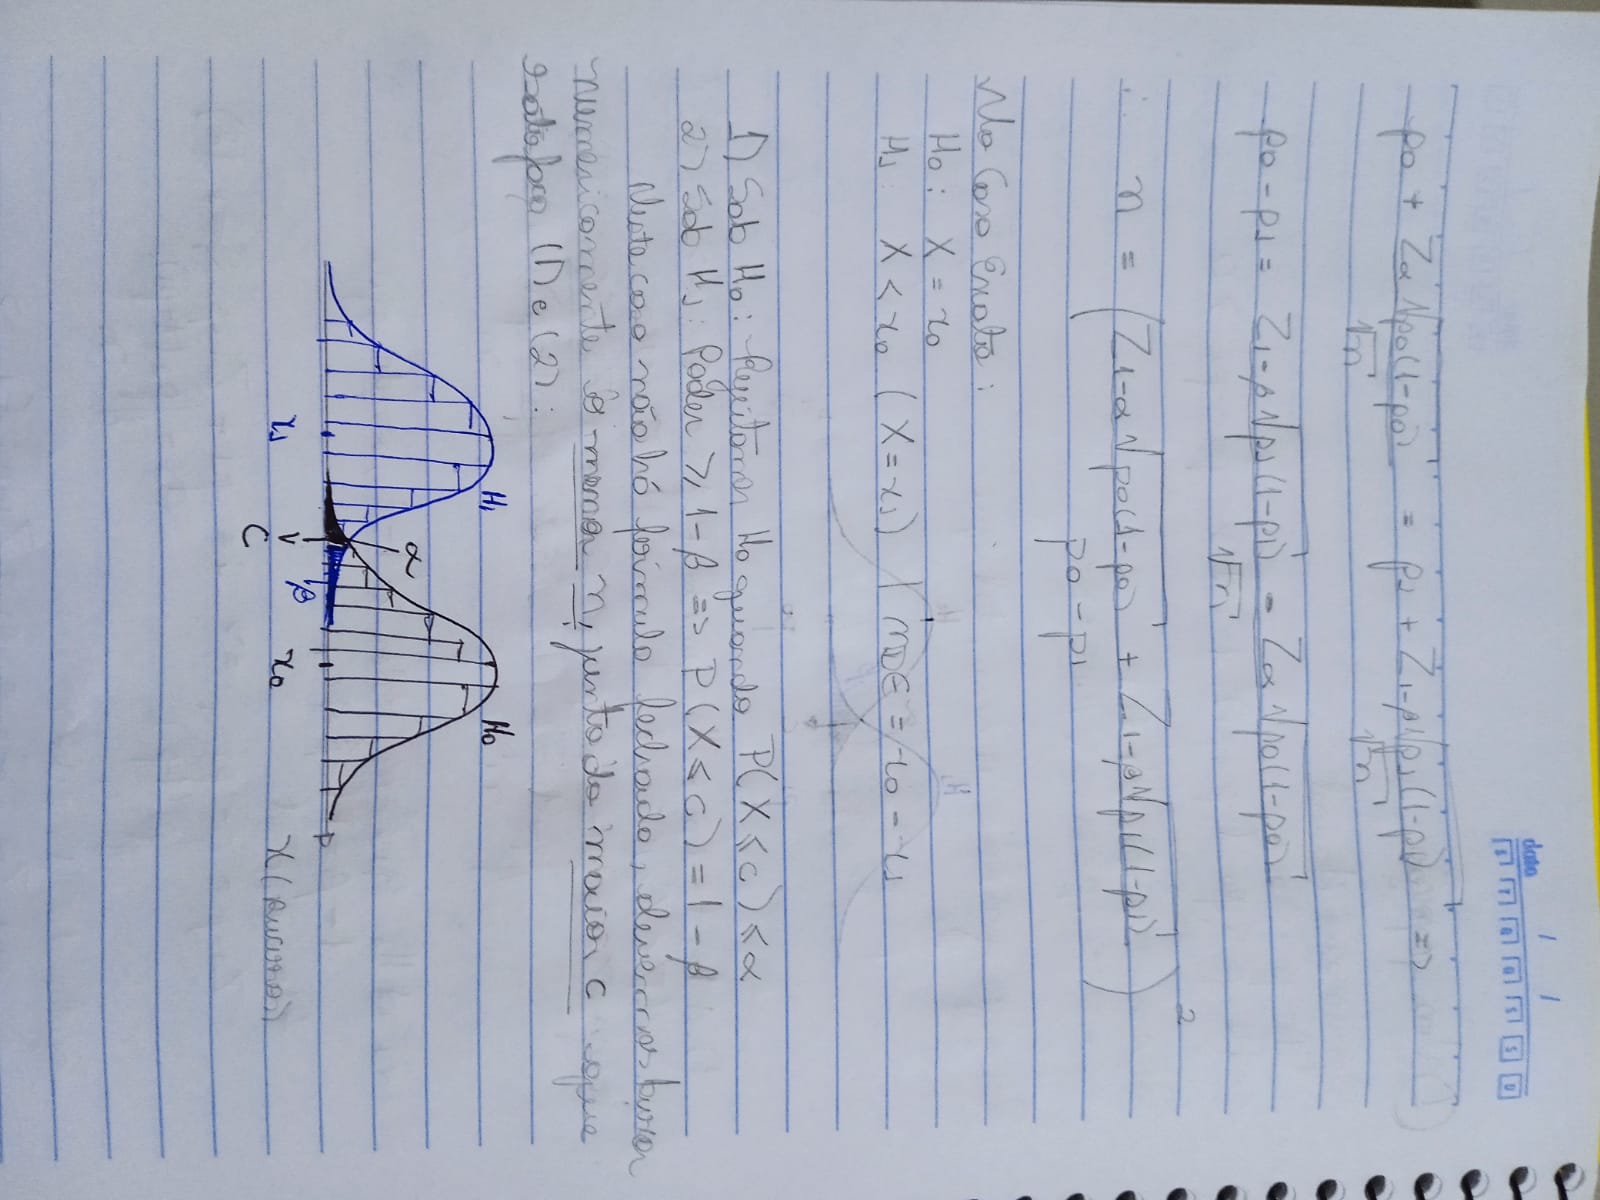 data / /
p0 + Zα √p0(1-p0) / √n = p1 + Z1-β √p1(1-p1) / √n =>
p0 - p1 = Z1-β √p1(1-p1) - Zα √p0(1-p0) / √n
∴ n = (Z1-α √p0(1-p0) + Z1-β √p1(1-p1) / p0 - p1)²
No Caso Exato:
H0: X = x0
H1: X < x0 (X = x1) | MDE = x0 - x1
1) Sob H0: Rejeitamos H0 quando P(X ≤ c) ≤ α
2) Sob H1: Poder ≥ 1-β => P(X ≤ c) = 1 - β
Neste caso não há fórmula fechada, devemos buscar
numericamente o menor n, junto do maior c que
satisfaça (1) e (2):
H1 H0
α
β
x1 c x0 x (sucessos)